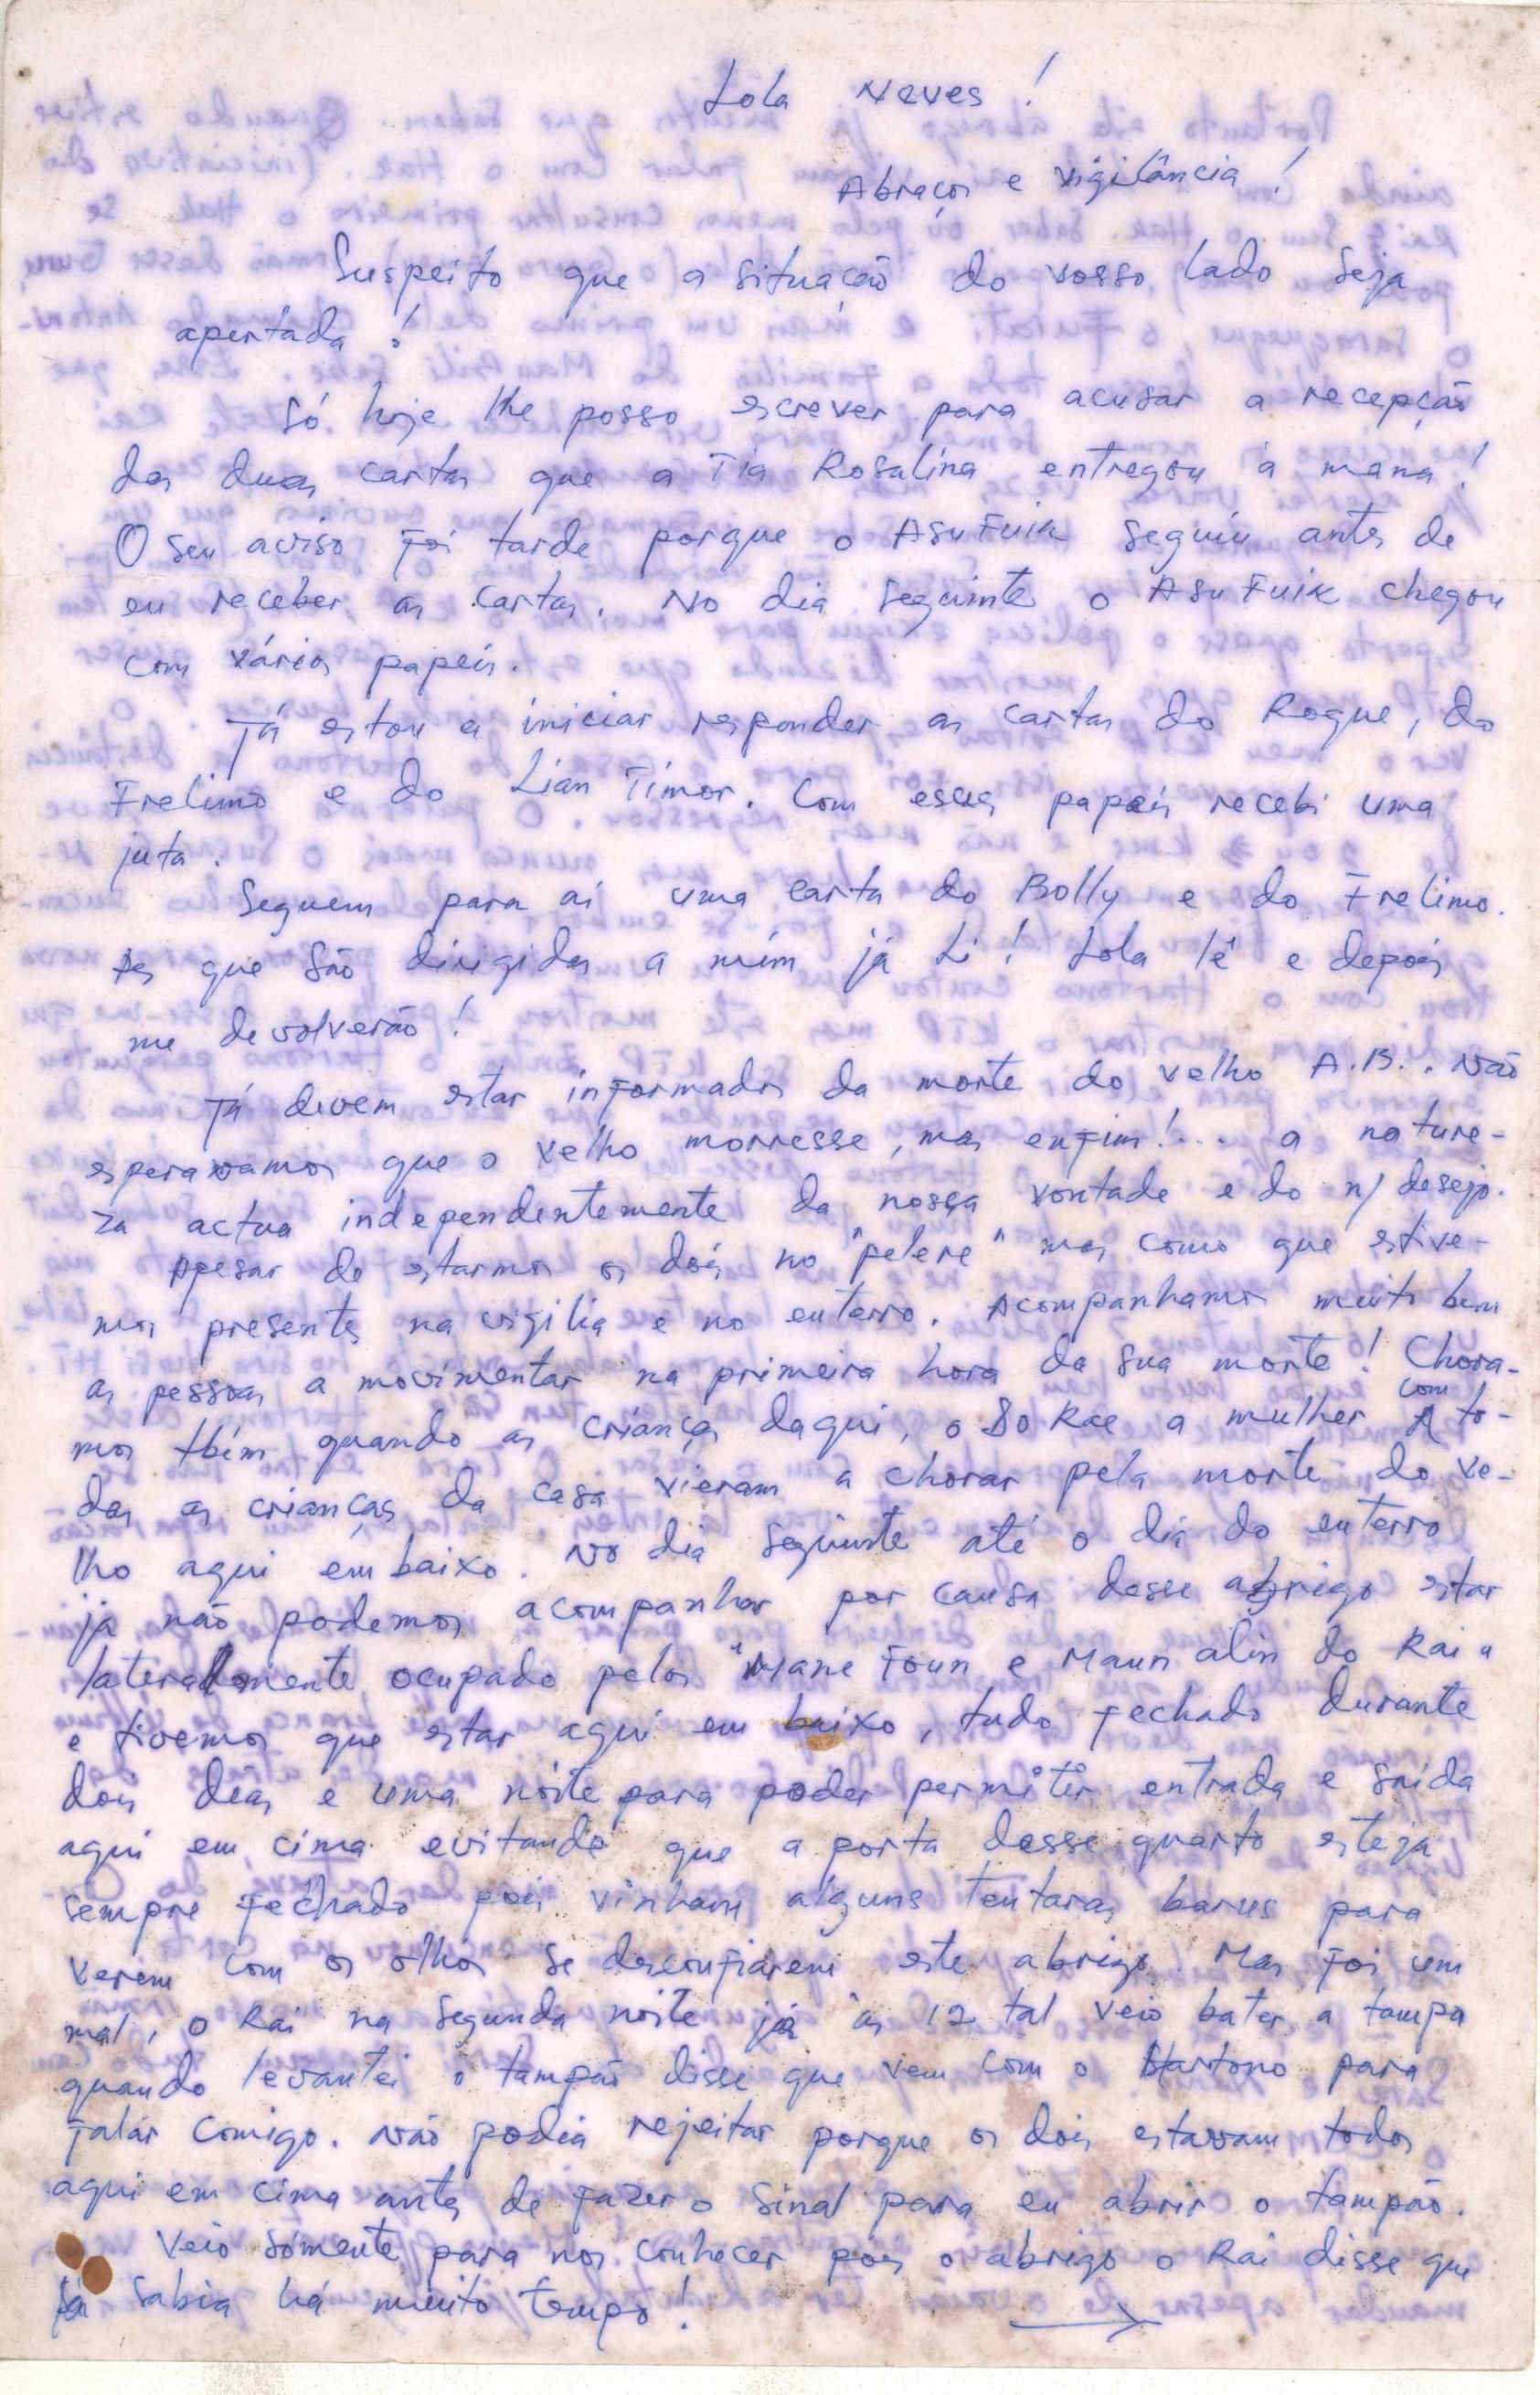 Lola Neves !
Abraços e vigilância !
Suspeito que a situação do vosso lado seja
apertada !
Só hoje lhe posso escrever para acusar a recepção
das duas cartas que a Tia Rosalina entregou à mana !
O seu aviso foi tarde porque o Asu Fuik seguiu antes de
eu receber as cartas. No dia seguinte o Asu Fuik chegou
com vários papéis.
Já estou a iniciar responder as cartas do Roque, do
Frelimo e do Lian Timor. Com esses papéis recebi uma
juta.
Seguem para aí uma carta do Bolly e do Frelimo.
As que são dirigidas a mim já li ! Lola lê e depois
me devolverão !
Já devem estar informados da morte do velho A.B.. Não
esperavamos que o velho morresse, mas enfim !... a nature-
za actua independentemente da nossa vontade e do n/ desejo.
Apesar de estarmos os dois no "pelere" mas como que estive-
mos presentes na vigília e no enterro. Acompanhamos muito bem
as pessoas a movimentar na primeira hora da sua morte ! Chora-
mos tbém quando as crianças daqui, o Do Rae a mulher com to-
das as crianças da casa vieram a chorar pela morte do ve-
lho aqui em baixo. No dia seguinte até o dia do enterro
já não podemos acompanhar por causa desse abrigo estar
lateralmente ocupado pelos "Mane Foun e Maun alin do Rai"
e tivemos que estar aqui em baixo, tudo fechado durante
dois dias e uma noite para poder permitir entrada e saída
aqui em cima evitando que a porta desse quarto esteja
sempre fechado pois vinham alguns tentaras barus para
verem com os olhos se desconfiarem este abrigo. Mas foi um
mal, o Rai na segunda noite já às 12 tal veio bater a tampa
quando levantei o tampão disse que vem com o Hartono para
falar comigo. Não podia rejeitar porque os dois estavam todos
aqui em cima antes de fazer o sinal para eu abrir o tampão.
Veio sómente para nos conhecer pois o abrigo o Rai disse que
já sabia há muito tempo !